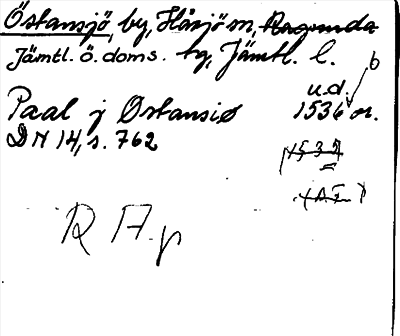 Östansjö, by, Håsjö sn, Ragunda
Jämtl. ö. doms. tg, Jämtl. l.
b
u.d.
Paal j Østansiø 1536 or.
DN 14, s. 762
R A.